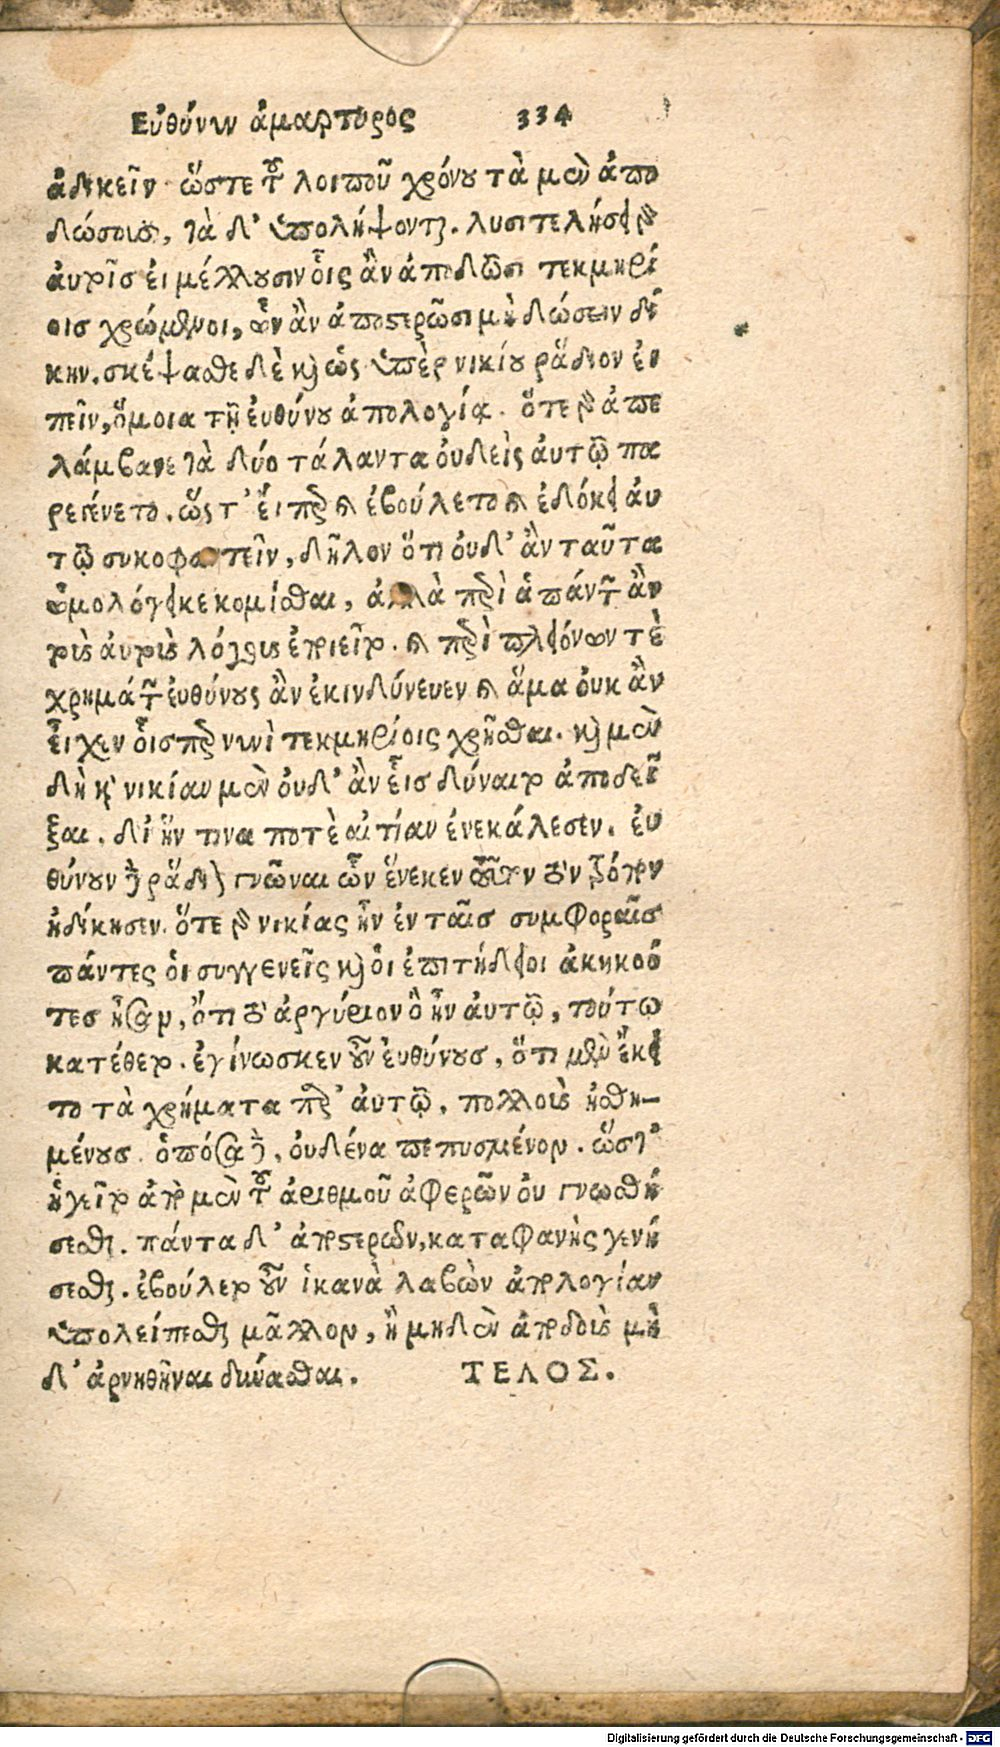 Εὐθύνῳ ἀμαρτυρος 334
ἀδικεῖν ὥστε τοῦ λοιποῦ χρόνου τὰ μὲν ἀπο
δώσουσι, τὰ δ' ὑπολήψονται. λυσιτελήσει γὰρ
ἀυτοῖσ ἐι μέλλουσιν οἷς ἂν ἀποδῶσι τεκμηρί
οισ χρώμενοι, ὧν ἂν ἀποστερῶσι μὴ δώσειν δί
κην. σκέψασθε δὲ καὶ ὡς ὑπὲρ νικίου ῥάδιον ἐι
πεῖν, ὅμοια τῇ ἐυθύνου ἀπολογίᾳ. ὅτε γὰρ ἀπε
λάμβανε τὰ δύο τάλαντα ὀυδεὶς ἀυτῷ πα
ρεγένετο. ὥς τ' ἔιπερ ἐβούλετο ἐδόκει ἀυ
τῷ συκοφαντεῖν, δῆλον ὅτι ὀυδ' ἂν ταῦτα
ὡμολόγει κεκομίσθαι, ἀλλὰ περὶ ἁπάντων ἂν
τοὺς ἀυτοὺς λόγους ἐποιεῖτο. περὶ πλειόνων τὲ
χρημάτων ἐυθύνους ἂν ἐκινδύνευεν ἅμα ὀυκ ἂν
ἔιχεν οἷσπερ νυνὶ τεκμηρίοις χρῆσθαι. καὶ μὲν
δὴ καὶ νικίαν μὲν ὀυδ' ἂν εἷισ δύναιτο ἀποδεῖ
ξαι. δι' ἥν τινα ποτὲ αἰτίαν ἐνεκάλεσεν. ἐυ
θύνουν δὲ ῥάδιον γνῶναι ὧν ἕνεκεν τοῦτον τὸν τρόπον
ἠδίκησεν. ὅτε γὰρ νικίας ἦν ἐν ταῖσ συμφοραῖσ
πάντες ὁι συγγενεῖς καὶ ὁι ἐπιτήδειοι ἀκηκοό
τεσ ἦσαν, ὅτι τὸ ἀργύριον ὃ ἦν ἀυτῷ, τούτῳ
κατέθετο. ἐγίνωσκεν οὖν ἐυθύνουσ, ὅτι μὲν ἔκει
το τὰ χρήματα παρ' ἀυτῷ, πολλοὺς ἠσθη-
μένουσ. ὁπόσα δὲ, ὀυδένα πεπυσμένον. ὥστ'
ἡγεῖτο ἀπὸ μὲν τοῦ ἀριθμοῦ ἀφερῶν ὀυ γνωσθή
σεσθαι. πάντα δ' ἀποστερῶν, καταφανὴς γενή
σεσθαι. ἐβούλετο οὖν ἱκανὰ λαβὼν ἀπολογίαν
ὑπολείπεσθαι μᾶλλον, ἢ μηδὲν ἀποδοὺς μὴ
δ' ἀρνηθῆναι δύνασθαι. ΤΕΛΟΣ.
Digitalisierung gefördert durch die Deutsche Forschungsgemeinschaft - DFG